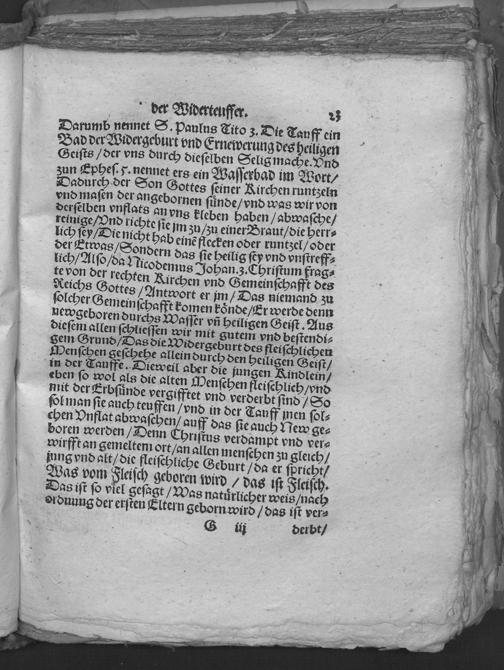 der Widerteuffer. 23
Darumb nennet S. Paulus Tito 3. Die Tauff ein
Bad der Widergeburt vnd Ernewerung des heiligen
Geists / der vns durch dieselben Selig mache. Vnd
zun Ephes. 5. nennet ers ein Wasserbad im Wort /
Dadurch der Son Gottes seiner Kirchen runtzeln
vnd masen der angebornen sünde / vnd was wir von
derselben vnflats an vns kleben haben / abwasche /
reinige / Vnd richte sie jm zu / zu einer Braut / die herr-
lich sey / Die nicht hab einē flecken oder runtzel / oder
der Etwas / Sondern das sie heilig sey vnd vnstreff-
lich / Also / da Nicodemus Johan. 3. Christum frag-
te von der rechten Kirchen vnd Gemeinschafft des
Reichs Gottes / Antwort er jm / Das niemand zu
solcher Gemeinschafft komen könde / Er werde denn
newgeboren durchs Wasser vñ heiligen Geist. Aus
diesem allen schliessen wir mit gutem vnd bestendi-
gem Grund / Das die Widergeburt des fleischlichen
Menschen geschehe allein durch den heiligen Geist /
in der Tauffe. Dieweil aber die jungen Kindlein /
eben so wol als die alten Menschen fleischlich / vnd
mit der Erbsünde vergifftet vnd verderbt sind / So
sol man sie auch teuffen / vnd in der Tauff jnen sol-
chen Vnflat abwaschen / auff das sie auch New ge-
boren werden / Denn Christus verdampt vnd ver-
wirfft an gemeltem ort / an allen menschen zu gleich /
jung vnd alt / die fleischliche Geburt / da er spricht /
Was vom Fleisch geboren wird / das ist Fleisch.
Das ist so viel gesagt / Was natürlicher weis / nach
ordnung der ersten Eltern geborn wird / das ist ver-
G iij derbt /